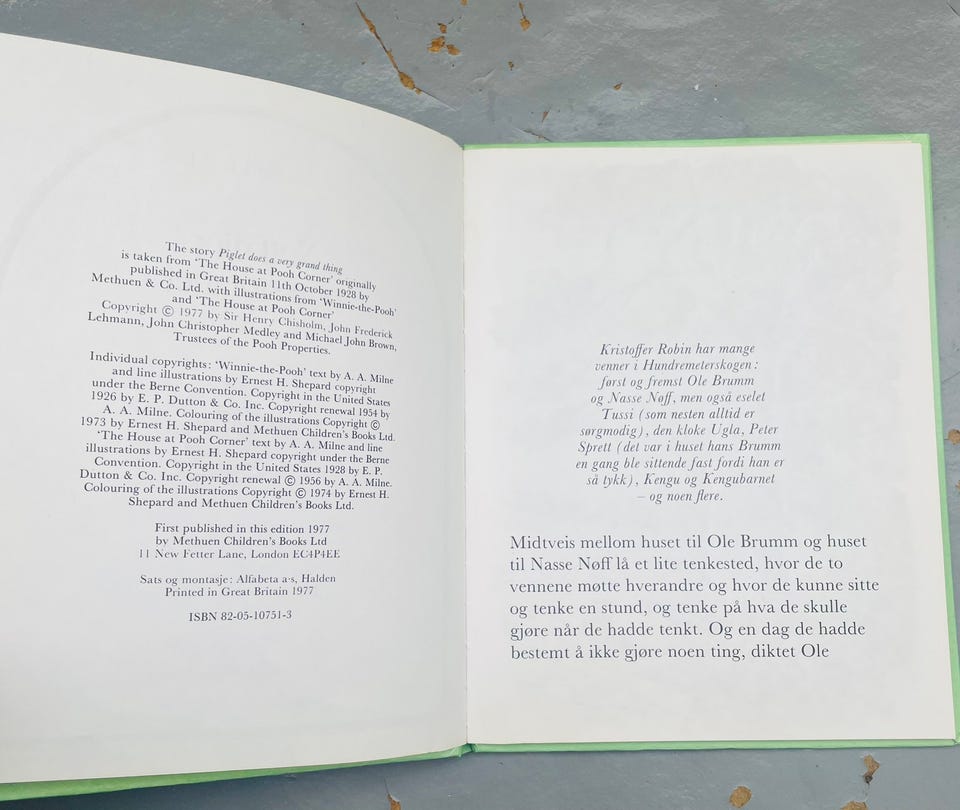 The story Piglet does a very grand thing
is taken from 'The House at Pooh Corner' originally
published in Great Britain 11th October 1928 by
Methuen & Co. Ltd. with illustrations from 'Winnie-the-Pooh'
and 'The House at Pooh Corner'
Copyright © 1977 by Sir Henry Chisholm, John Frederick
Lehmann, John Christopher Medley and Michael John Brown,
Trustees of the Pooh Properties.
Individual copyrights: 'Winnie-the-Pooh' text by A. A. Milne
and line illustrations by Ernest H. Shepard copyright
under the Berne Convention. Copyright in the United States
1926 by E. P. Dutton & Co. Inc. Copyright renewal 1954 by
A. A. Milne. Colouring of the illustrations Copyright ©
1973 by Ernest H. Shepard and Methuen Children's Books Ltd.
'The House at Pooh Corner' text by A. A. Milne and line
illustrations by Ernest H. Shepard copyright under the Berne
Convention. Copyright in the United States 1928 by E. P.
Dutton & Co. Inc. Copyright renewal © 1956 by A. A. Milne.
Colouring of the illustrations Copyright © 1974 by Ernest H.
Shepard and Methuen Children's Books Ltd.
First published in this edition 1977
by Methuen Children's Books Ltd
11 New Fetter Lane, London EC4P4EE
Sats og montasje: Alfabeta a·s, Halden
Printed in Great Britain 1977
ISBN 82-05-10751-3
Kristoffer Robin har mange
venner i Hundremeterskogen:
først og fremst Ole Brumm
og Nasse Nøff, men også eselet
Tussi (som nesten alltid er
sørgmodig), den kloke Ugla, Peter
Sprett (det var i huset hans Brumm
en gang ble sittende fast fordi han er
så tykk), Kengu og Kengubarnet
– og noen flere.
Midtveis mellom huset til Ole Brumm og huset
til Nasse Nøff lå et lite tenkested, hvor de to
vennene møtte hverandre og hvor de kunne sitte
og tenke en stund, og tenke på hva de skulle
gjøre når de hadde tenkt. Og en dag de hadde
bestemt å ikke gjøre noen ting, diktet Ole